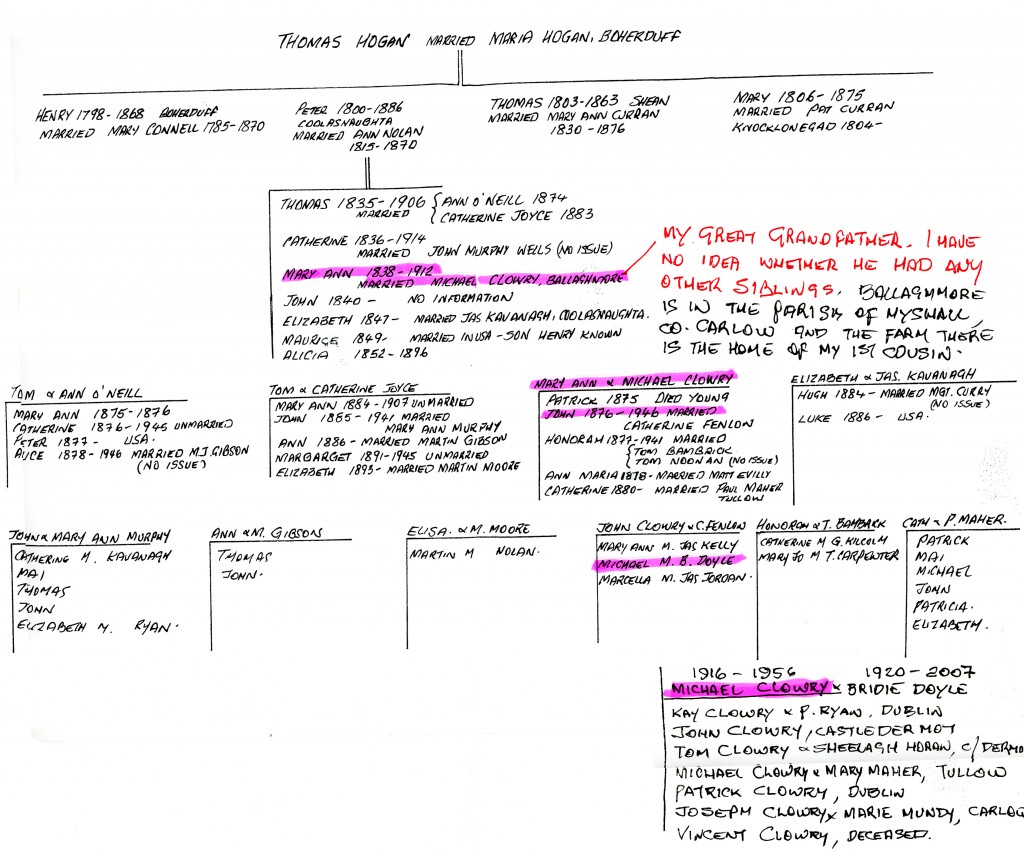 THOMAS HOGAN MARRIED MARIA HOGAN, BOHERDUFF
HENRY 1798-1868 BOHERDUFF
MARRIED MARY CONNELL 1785-1870
PETER 1800-1886
COOLASNAUGHTA
MARRIED ANN NOLAN
1815-1870
THOMAS 1803-1863 SHEAN
MARRIED MARY ANN CURRAN
1830-1876
MARY 1806-1875
MARRIED PAT CURRAN
KNOCKLONEGAD 1804-
THOMAS 1835-1906 { ANN O'NEILL 1874
MARRIED { CATHERINE JOYCE 1883
CATHERINE 1836-1914
MARRIED JOHN MURPHY WELLS (NO ISSUE)
MARY ANN 1838-1912
MARRIED MICHAEL CLOWRY, BALLAGHMORE
JOHN 1840- NO INFORMATION
ELIZABETH 1847- MARRIED JAS KAVANAGH, COOLASNAUGHTA.
MAURICE 1849- MARRIED IN USA - SON HENRY KNOWN
ALICIA 1852-1896
MY GREAT GRANDFATHER. I HAVE
NO IDEA WHETHER HE HAD ANY
OTHER SIBLINGS. BALLAGHMORE
IS IN THE PARISH OF MYSHALL
CO. CARLOW AND THE FARM THERE
IS THE HOME OF MY 1ST COUSIN.
TOM & ANN O'NEILL
MARY ANN 1875-1876
CATHERINE 1876-1945 UNMARRIED
PETER 1877- USA.
ALICE 1878-1946 MARRIED M.J. GIBSON
(NO ISSUE)
TOM & CATHERINE JOYCE
MARY ANN 1884-1907 UNMARRIED
JOHN 1885-1941 MARRIED
MARY ANN MURPHY
ANN 1886- MARRIED MARTIN GIBSON
MARGARGET 1891-1945 UNMARRIED
ELIZABETH 1893- MARRIED MARTIN MOORE
MARY ANN & MICHAEL CLOWRY
PATRICK 1875 DIED YOUNG
JOHN 1876-1946 MARRIED
CATHERINE FENLON
HONORAH 1877-1941 MARRIED
{ TOM BAMBRICK
{ TOM NOONAN (NO ISSUE)
ANN MARIA 1878- MARRIED MATT EVILLY
CATHERINE 1880- MARRIED PAUL MAHER
TULLOW
ELIZABETH & JAS. KAVANAGH
HUGH 1884- MARRIED MGT. CURRY
(NO ISSUE)
LUKE 1886- USA.
JOHN & MARY ANN MURPHY
CATHERINE M. KAVANAGH
MAI
THOMAS
JOHN
ELIZABETH M. RYAN.
ANN & M. GIBSON
THOMAS
JOHN.
ELISA. & M. MOORE
MARTIN M NOLAN.
JOHN CLOWRY & C. FENLON
MARY ANN M. JAS KELLY
MICHAEL M. B. DOYLE
MARCELLA M. JAS JORDAN.
HONORAH & T. BAMBARK
CATHERINE M G. KILCOLM
MARY JO M T. CARPENTER
CATH & P. MAHER.
PATRICK
MAI
MICHAEL
JOHN
PATRICIA.
ELIZABETH.
1916-1956 1920-2007
MICHAEL CLOWRY & BRIDIE DOYLE
KAY CLOWRY & P. RYAN, DUBLIN
JOHN CLOWRY, CASTLEDERMOT
TOM CLOWRY & SHEELAGH HORAN, C/DERMO
MICHAEL CLOWRY & MARY MAHER, TULLOW
PATRICK CLOWRY, DUBLIN
JOSEPH CLOWRY & MARIE MUNDY, CARLOW
VINCENT CLOWRY, DECEASED.